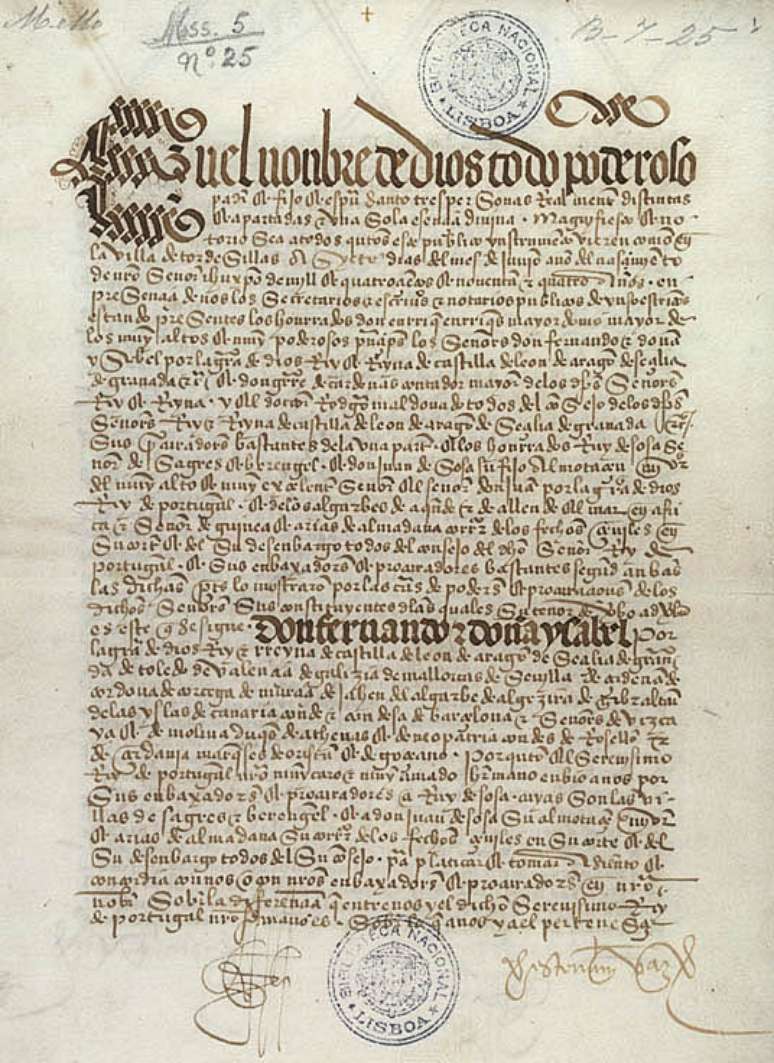 Mello
Mss. 5
Nº. 25
B-7-25
BIBLIOTECA NACIONAL
LISBOA
En el nonbre de dios todo poderoso
padre et fijo et espiritu santo tres personas Real mente distintas
et apartadas e vna sola esençia diuina. Magnifiesto et no
torio sea a todos quantos este publico ynstrumento vieren como en
la villa de tordesillas a syete dias del mes de junio año del nasçimiento
de nuestro Señor ihuxpo de mill et quatroçientos et nouenta e quatro años. en
presençia de nos los secretarios e escriuanos e notarios publicos de yuso escriptos
estando presentes los honrrados don enrrique enrriques mayordomo mayor de
los muy altos et muy poderosos prinçipes los Señores don fernando e doña
ysabel por la graçia de dios Rey et Reyna de castilla de leon de aragon de seçilia
de granada etc. et don gutierre de cardenas contador mayor de los dichos Señores
Rey et Reyna. y el doctor Rodrigo maldonado todos del consejo de los dichos
Señores Rey e Reyna de castilla de leon de aragon de seçilia de granada etc.
sus procuradores bastantes de la vna parte. et los honrrados Ruy de sosa Se
ñor de sagres et berengel. et don juan de sosa su fijo almotaçen mayor
del muy alto et muy exçelente Señor el señor don juan por la graçia de dios
Rey de portugal. et de los algarbes de aquende e de allende el mar en afri
ca e Señor de guinea et arias de almadana corregidor de los fechos çeuiles en
su corte et del su desenbargo todos del consejo del dicho Señor Rey de
portugal. et sus enbaxadores et procuradores bastantes segund anbas
las dichas partes lo mostraron por las cartas de poderes et procuraçiones de los
dichos Señores sus constituyentes de las quales su tenor de verbo ad verbum
es este que se sigue. Don fernando e doña ysabel por
la graçia de dios Rey e Reyna de castilla de leon de aragon de seçilia de grana
da de toledo de valençia de galizia de mallorcas de seuilla de çerdeña de
cordoua de corçega de murçia de jahen del algarbe de algezira de gibraltar
de las yslas de canaria conde e condesa de barçelona e Señores de vizca
ya et de molina duques de athenas et de neopatria condes de Rosellon e
de çerdania marqueses de oristan et de goçeano. Por quanto el serenisimo
Rey de portugal nuestro muy caro e muy amado hermano enbio a nos por
sus enbaxadores et procuradores a Ruy de sosa. cuyas son las vi
llas de sagres e berengel. et a don juan de sosa su almotaçen mayor
et arias de almadana su corregidor de los fechos çeuiles en su corte et del
su desenbargo todos del su consejo. para platicar et tomar asiento et
concordia con nos o con nuestros enbaxadores et procuradores en nuestro
nonbre sobre la diferençia que entre nos y el dicho serenisimo Rey
de portugal nuestro hermano es. sobre lo que a nos y a el perteneçe
BIBLIOTECA NACIONAL
LISBOA